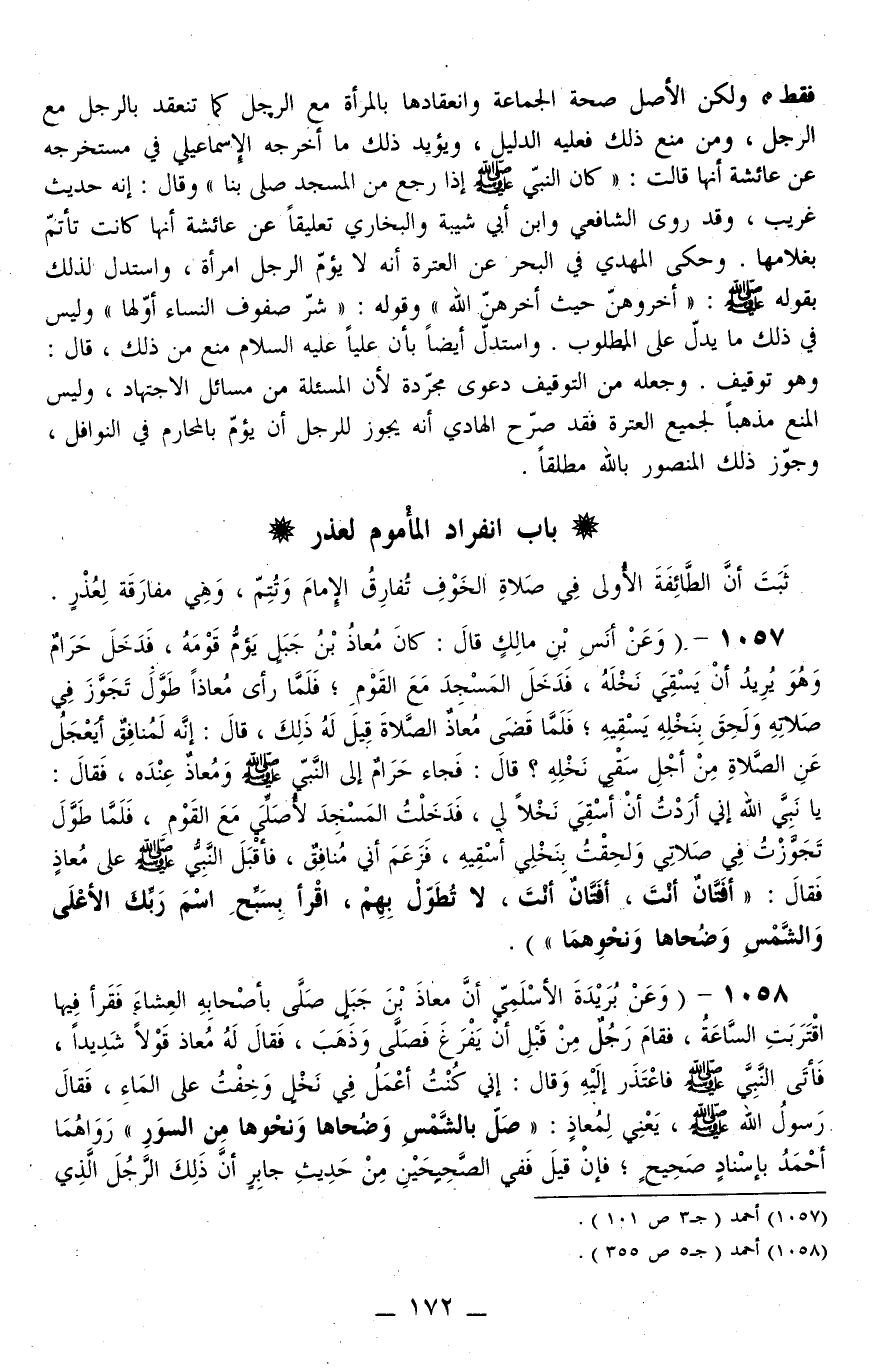 فقط » ولكن الأصل صحة الجماعة وانعقادها بالمرأة مع الرجل كما تنعقد بالرجل مع
الرجل ، ومن منع ذلك فعليه الدليل ، ويؤيد ذلك ما أخرجه الإسماعيلي في مستخرجه
عن عائشة أنها قالت : « كان النبيّ ﷺ إذا رجع من المسجد صلى بنا » وقال : إنه حديث
غريب ، وقد روى الشافعي وابن أبي شيبة والبخاري تعليقاً عن عائشة أنها كانت تأتمّ
بغلامها . وحكى المهدي في البحر عن العترة أنه لا يؤمّ الرجل امرأة ، واستدل لذلك
بقوله ﷺ : « أخروهنّ حيث أخرهنّ الله » وقوله : « شرّ صفوف النساء أوّلها » وليس
في ذلك ما يدلّ على المطلوب . واستدلّ أيضاً بأن علياً عليه السلام منع من ذلك ، قال :
وهو توقيف . وجعله من التوقيف دعوى مجرّدة لأن المسئلة من مسائل الاجتهاد ، وليس
المنع مذهباً لجميع العترة فقد صرّح الهادي أنه يجوز للرجل أن يؤمّ بالمحارم في النوافل ،
وجوّز ذلك المنصور بالله مطلقاً .
باب انفراد المأموم لعذر
ثَبَتَ أنَّ الطَّائِفَةَ الأُولى فِي صَلاةِ الخَوْفِ تُفارِقُ الإمامَ وَتُتِمّ ، وَهِي مفارَقَة لِعُذْرٍ .
١٠٥٧ - ( وَعَنْ أنَسِ بْنِ مالِكٍ قالَ : كانَ مُعاذُ بْنُ جَبَلٍ يَؤمُّ قَوْمَهُ ، فَدَخَلَ حَرَامٌ
وَهُوَ يُرِيدُ أنْ يَسْقِيَ نَخْلَهُ ، فَدَخَلَ المَسْجِدَ مَعَ القَوْمِ ؛ فَلَمَّا رأى مُعاذاً طَوَّلَ تَجَوَّزَ فِي
صَلاتِهِ وَلَحِقَ بِنَخْلِهِ يَسْقِيهِ ؛ فَلَمَّا قَضَى مُعاذٌ الصَّلاةَ قِيلَ لَهُ ذَلِكَ ، قالَ : إنَّه لَمُنافِقٌ أيَعْجَلُ
عَنِ الصَّلاةِ مِنْ أجْلِ سَقْيِ نَخْلِهِ ؟ قالَ : فَجاء حَرَامٌ إلى النَّبيّ ﷺ وَمُعاذٌ عِنْدَه ، فَقالَ :
يا نَبِيَّ الله إني أرَدْتُ أنْ أسْقِيَ نَخْلاً لي ، فَدَخَلْتُ المَسْجِدَ لأُصَلِّيَ مَعَ القَوْمِ ، فَلَمَّا طَوَّلَ
تَجَوَّزْتُ فِي صَلاتِي وَلَحِقْتُ بِنَخْلِي أسْقِيهِ ، فَزَعَمَ أني مُنافِقٌ ، فأقْبَلَ النَّبيُّ ﷺ على مُعاذٍ
فَقالَ : « أفَتَّانٌ أنْتَ ، أفَتَّانٌ أنْتَ ، لا تُطَوّلْ بِهِمْ ، اقْرأ بِسَبِّحِ اسْمَ رَبِّكَ الأعْلَى
وَالشَّمْسِ وَضُحاها وَنَحْوِهمَا » ) .
١٠٥٨ - ( وَعَنْ بُرَيْدَةَ الأسْلَمِيّ أنَّ معاذَ بْنَ جَبَلٍ صَلَّى بأصْحابِهِ العِشاءَ فَقَرأ فِيها
اقْتَرَبَتِ السَّاعَةُ ، فقامَ رَجُلٌ مِنْ قَبْلِ أنْ يَفْرَغَ فَصَلَّى وَذَهَبَ ، فَقالَ لَهُ مُعاذ قَوْلاً شَدِيداً ،
فَأتَى النَّبيَّ ﷺ فاعْتَذَر إلَيْهِ وَقال : إني كُنْتُ أعْمَلُ فِي نَخْلٍ وَخِفْتُ على المَاءِ ، فَقالَ
رَسولُ الله ﷺ ، يَعْنِي لِمُعاذٍ : « صَلّ بالشَّمْسِ وَضُحاها وَنحْوها مِن السوَرِ » رَوَاهُمَا
أحْمَدُ بإسْنادٍ صَحِيحٍ ؛ فإنْ قيلَ فَفي الصَّحِيحَيْنِ مِنْ حَدِيثِ جابِرٍ أنَّ ذَلِكَ الرَّجُلَ الَّذِي
(١٠٥٧) أحمد ( جـ٣ ص ١٠١ ) .
(١٠٥٨) أحمد ( جـ٥ ص ٣٥٥ ) .
— ١٧٢ —